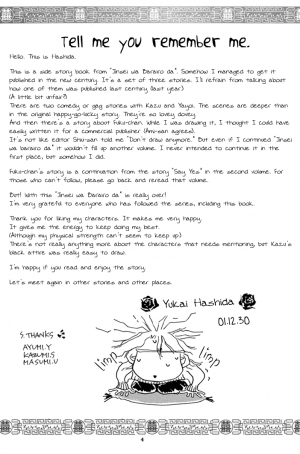 Tell me you remember me.
Hello. This is Hashida.
This is a side story book from "Jinsei wa Barairo da". Somehow I managed to get it
published in the new century. It's a set of three stories. I'll refrain from talking about
how one of them was published last century (last year)
(A little bit unfair?)
There are two comedy or gag stories with Kazu and Yayoi. The scenes are deeper than
in the original happy-go-lucky story. They're so lovey dovey.
And then there's a story about Fuki-chan. While I was drawing it, I thought I could have
easily written it for a commercial publisher (Ami-san agrees).
It's not like editor Shiu-san told me "Don't draw anymore." But even if I continued "Jinsei
wa Barairo da" it wouldn't fill up another volume. I never intended to continue it in the
first place, but somehow I did.
Fuki-chan's story is a continuation from the story "Say Yes" in the second volume. For
those who can't follow, please go back and reread that volume.
But! With this "Jinsei wa Barairo da" is really over!
I'm very grateful to everyone who has followed the series, including this book.
Thank you for liking my characters. It makes me very happy.
It gives me the energy to keep doing my best.
(Although my physical strength can't seem to keep up.)
There's not really anything more about the characters that needs mentioning, but Kazu's
black attire was really easy to draw.
I'm happy if you read and enjoy the story.
Let's meet again in other stories and other places.
Yukai Hashida
01.12.30
S.THANKS
AYUMI.Y
KABUMI.S
MASUMI.U
limp
limp
4